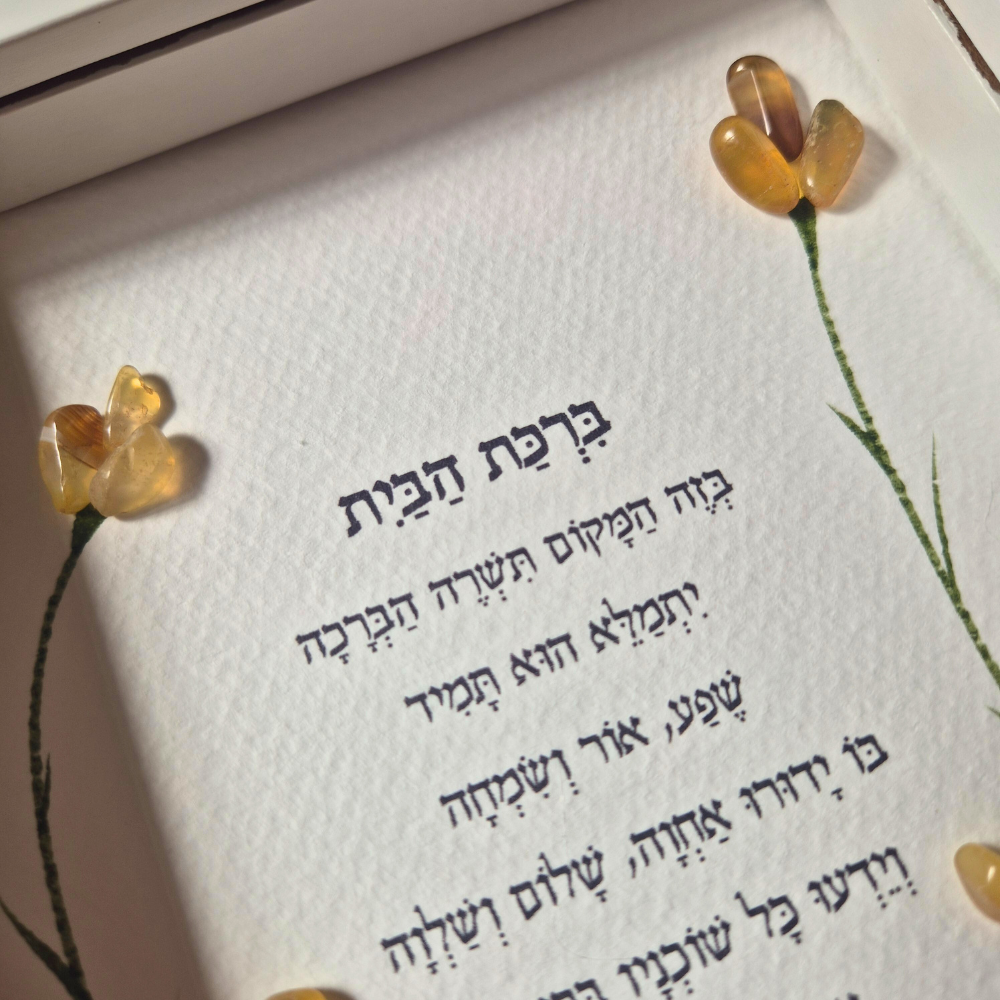 בִּרְכַּת הַבַּיִת
בְּזֶה הַמָּקוֹם תִּשְׁרֶה הַבְּרָכָה
יִתְמַלֵּא הוּא תָּמִיד
שֶׁפַע, אוֹר וְשִׂמְחָה
בּוֹ יָדוּרוּ אַחְוָה, שָׁלוֹם וְשַׁלְוָה
וְיֵדְעוּ כָּל שׁוֹכְנָיו